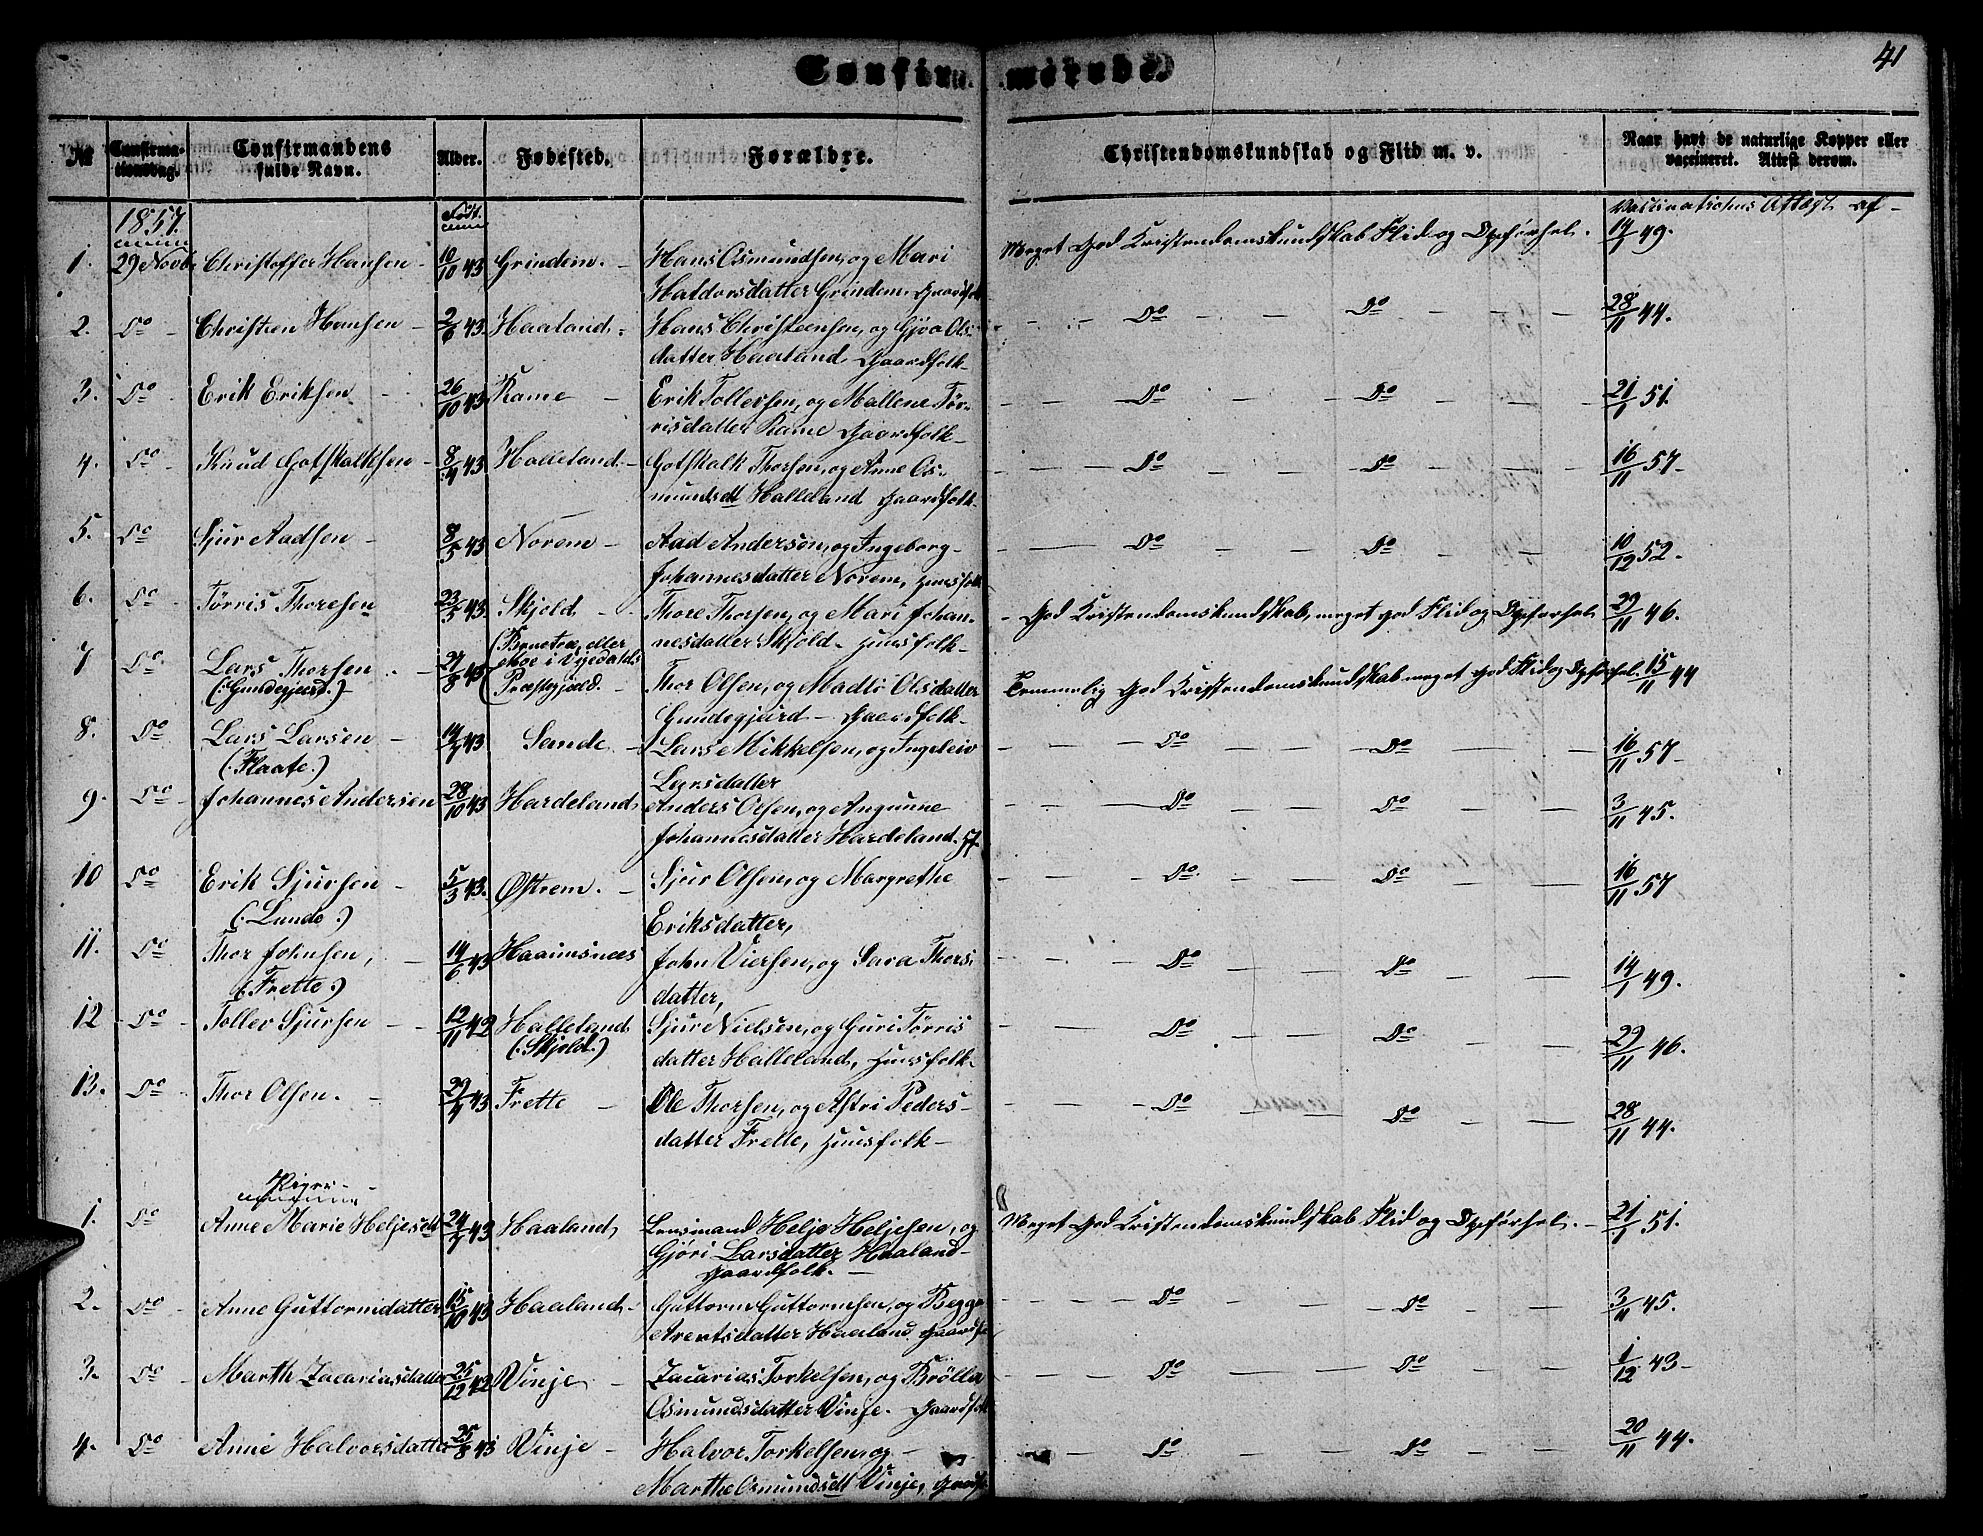 41
Confirmerede
No Confirma-tionsdag. Confirmandens fulde Navn. Alder. Fødested. Forældre. Christendomskundskab og Flid m. v. Naar havt de naturlige Kopper eller vaccineret. Attest derom.
1857. Født.
1. 29 Novb Christoffer Hansen 10/10 43 Grindem. Hans Osmundsen, og Mari Meget god Kristendomskundskab Flid og Opførsel. 14/1 49.
Haldorsdatter Grindem. Gaardfolk
2. Do Christen Hansen 2/6 43. Haaland. Hans Christensen, og Gjoa Ols- Do Do 28/11 44.
datter Haaland Gaardfolk
3. Do Erik Eriksen 26/10 43 Rame Erik Tollefsen, og Mallene Tør- Do Do 21/1 51.
risdatter Rame Gaardfolk
4. Do Knud Gotskalksen 8/4 43 Halleland Gotskalk Thorsen, og Anne Os- Do Do 16/11 57
mundsdt Halleland Gaardfolk
5. Do Sjur Aadsen 8/5 43 Norem Aad Andersen, og Ingeborg Do Do 10/12 52.
Johannesdatter Norem, Huusfolk
6. Do Tørris Thoresen 23/5 43. Skjold Thore Thorsen, og Mari Johan- God Kristendomskundskab, meget god Flid og Opførsel 29/11 46.
nesdatter Skjold. Huusfolk
7 Do Lars Thorsen 24/8 43 eller i Thor Olsen, og Madlo Olsdatter Temmelig god Kristendomskundskab meget god Flid og Opførsel. 15/11 44
(:Gundegjerd.) Præstegjæld. Gundegjerd Gaardfolk
8. Do Lars Larsen 14/7 43 Sande Lars Mikkelsen, og Ingeleiv Do Do 16/11 57
(:Flaate.) Larsdatter
9. Do Johannes Andersen 28/10 43 Hardeland Anders Olsen, og Angunne Do Do 3/11 45.
Johannesdatter Hardeland.
10 Do Erik Sjursen 5/3 43. Østrem. Sjur Olsen, og Margrethe Do Do 16/11 57
(:Lunde:) Eriksdatter,
11. Do Thor Johnsen, 14/6 43 Haaimsnees John Viersen, og Sara Thors Do Do 14/1 49.
(:Frette:) datter,
12 Do Tollev Sjursen 12/11 42 Halleland Sjur Nielsen, og Guri Tørris Do Do 29/11 46.
(:Skjold.) datter Halleland, Huusfolk
13. Do Thor Olsen. 29/4 43 Frette Ole Thorsen, og Astri Peders- Do Do 28/11 44.
datter Frette, Huusfolk
Piger
1. Do Anne Marie Heljesdt 24/7 43 Haaland Lensmand Helje Heljesen, og Meget god Kristendomskundskab Flid og Opførsel. 21/1 51.
Gjøri Larsdatter Haaland
Gaardfolk.
2. Do Anne Guttormsdatter 15/10 43 Haaland Guttorm Guttormsen, og Begge Do Do 3/11 45.
Arentsdatter Haaland Gaardfo
3. Do Marthe Zacariasdatter 25/12 42 Vinje Zacarias Torkelsen, og Brølla Do Do 1/12 43
Osmundsdatter Vinje. Gaardfolk
4. Do Anne Halvorsdatter 25/8 43 Vinje Halvor Torkelsen, og Do Do 20/11 44.
Marthe Osmundsdt Vinje, Gaardf